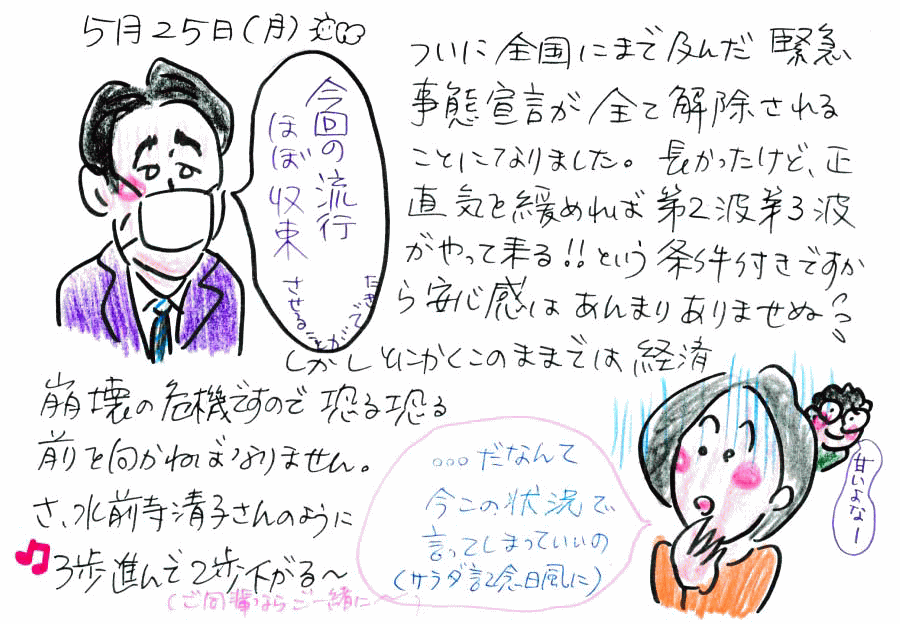 5月25日(月)
今回の流行
ほぼ収束
させることが
できた
ついに全国にまで及んだ緊急
事態宣言が全て解除される
ことになりました。長かったけど、正
直気を緩めれば第2波第3波
がやって来る!!という条件付きですか
ら安心感はあんまりありませぬ
しかしとにかくこのままでは経済
崩壊の危機ですので恐る恐る
前を向かねばなりません。
さ、水前寺清子さんのように
♫3歩進んで2歩下がる〜
(ご同輩ならご一緒に〜)
...だなんて
今この状況で
言ってしまっていいの
(サラダ記念日風に)
甘いよなー